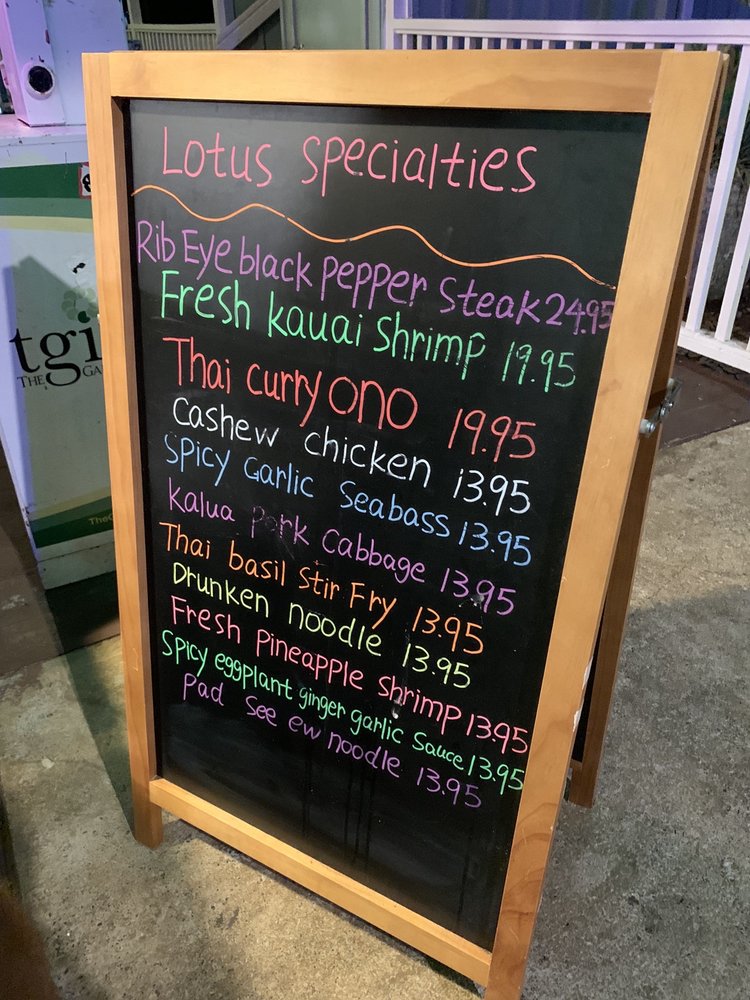 Lotus specialties
Rib Eye black pepper steak 24.95
Fresh kauai shrimp 19.95
Thai curry ono 19.95
Cashew chicken 13.95
Spicy Garlic Seabass 13.95
kalua pork cabbage 13.95
Thai basil stir Fry 13.95
Drunken noodle 13.95
Fresh pineapple shrimp 13.95
Spicy eggplant ginger garlic sauce 13.95
pad see ew noodle 13.95
tgi
THE GA
The